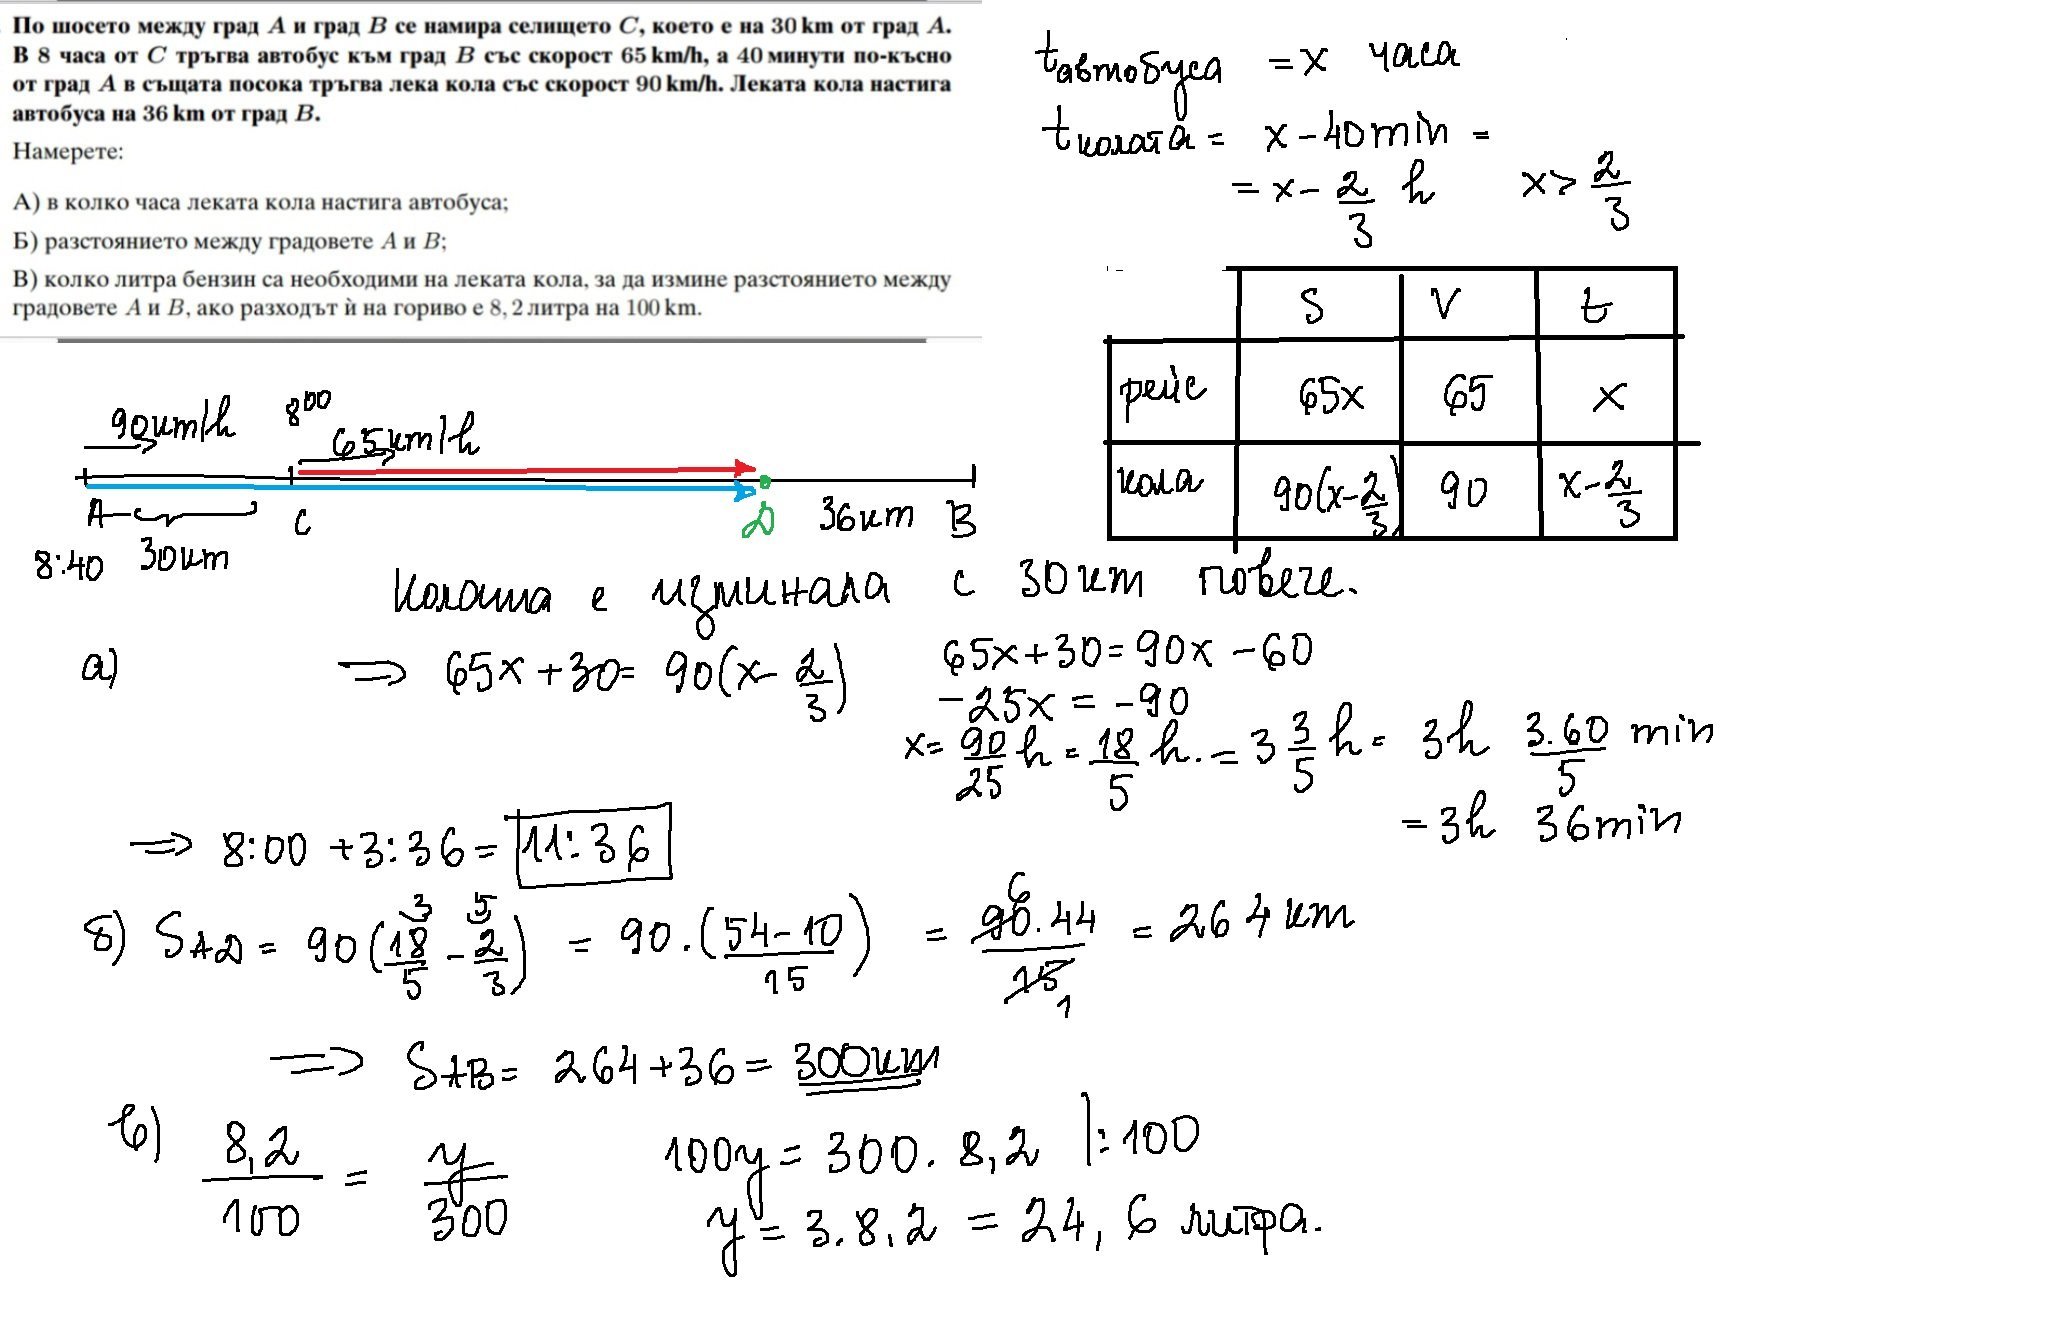 По шосето между град A и град B се намира селището C, което е на 30 km от град A.
В 8 часа от C тръгва автобус към град B със скорост 65 km/h, а 40 минути по-късно
от град A в същата посока тръгва лека кола със скорост 90 km/h. Леката кола настига
автобуса на 36 km от град B.
Намерете:
А) в колко часа леката кола настига автобуса;
Б) разстоянието между градовете A и B;
В) колко литра бензин са необходими на леката кола, за да измине разстоянието между
градовете A и B, ако разходът ѝ на гориво е 8, 2 литра на 100 km.
tавтобуса = x часа
tколата = x - 40 min =
= x - 2/3 h x > 2/3
S V t
рейс 65x 65 x
кола 90(x - 2/3) 90 x - 2/3
90 km/h 8⁰⁰ 65 km/h
A C D 36 km B
8:40 30 km
Колата е изминала с 30 km повече.
а) => 65x + 30 = 90(x - 2/3)
65x + 30 = 90x - 60
-25x = -90
x = 90/25 h = 18/5 h. = 3 3/5 h = 3h 3.60/5 min
= 3h 36 min
=> 8:00 + 3:36 = 11:36
б) SAD = 90(18/5 - 2/3) = 90.(54-10/15) = 90.44/15 = 264 km
=> SAB = 264 + 36 = 300 km
в) 8,2/100 = y/300
100y = 300. 8,2 |:100
y = 3.8,2 = 24,6 литра.